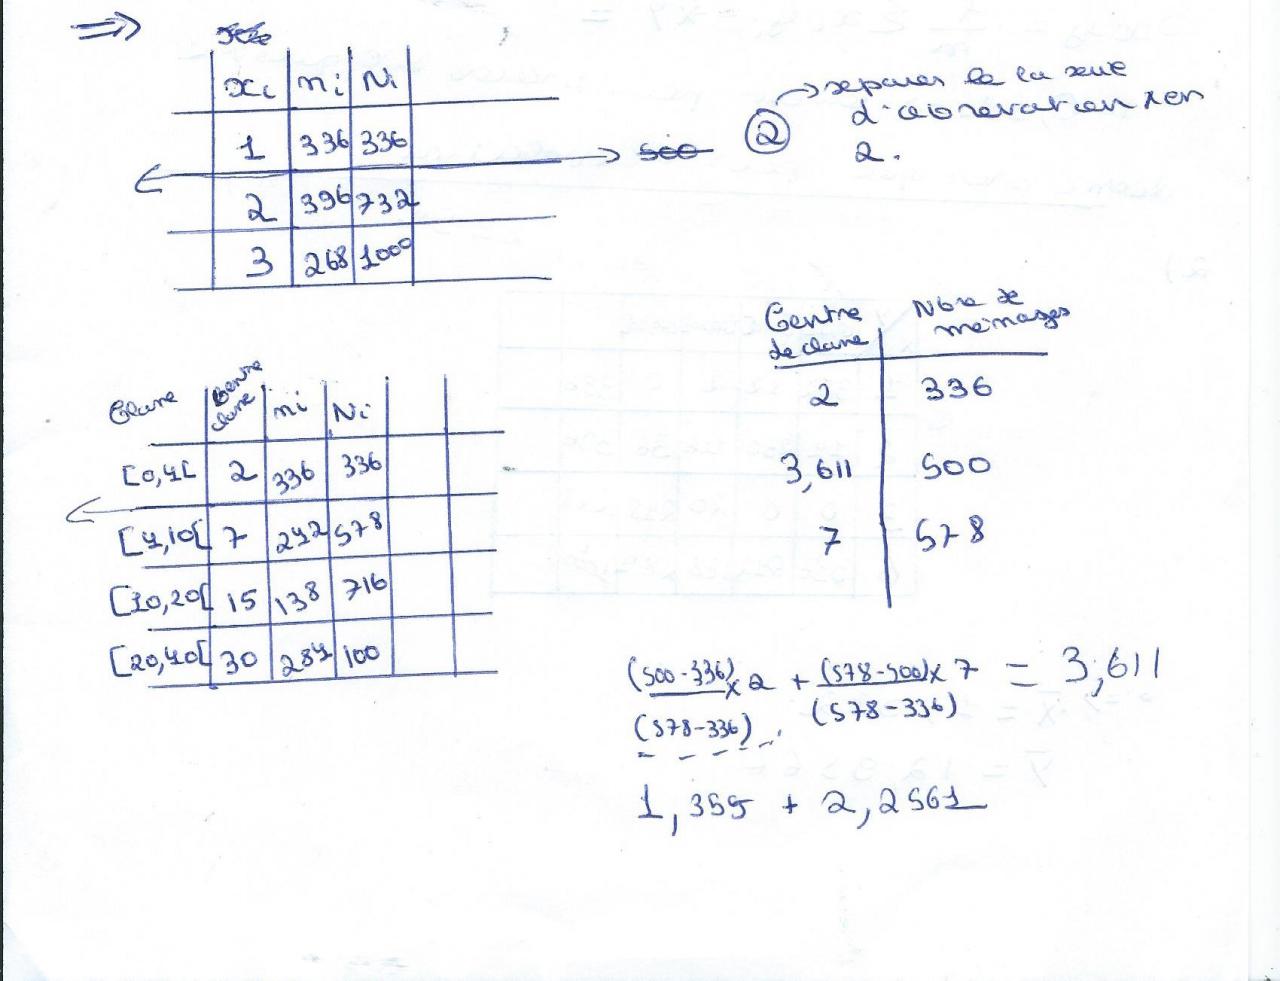 xi | ni | Ni
1 | 336 | 336
2 | 396 | 732
3 | 268 | 1000
500
② → separer la serie
d'observation en
2.
Classe | Centre classe | ni | Ni
[0,4[ | 2 | 336 | 336
[4,10[ | 7 | 242 | 578
[10,20[ | 15 | 138 | 716
[20,40[ | 30 | 284 | 100
Centre de classe | Nbre de ménages
2 | 336
3,611 | 500
7 | 578
(500-336)/(578-336) x 2 + (578-500)x 7/(578-336) = 3,611
1,355 + 2,2561